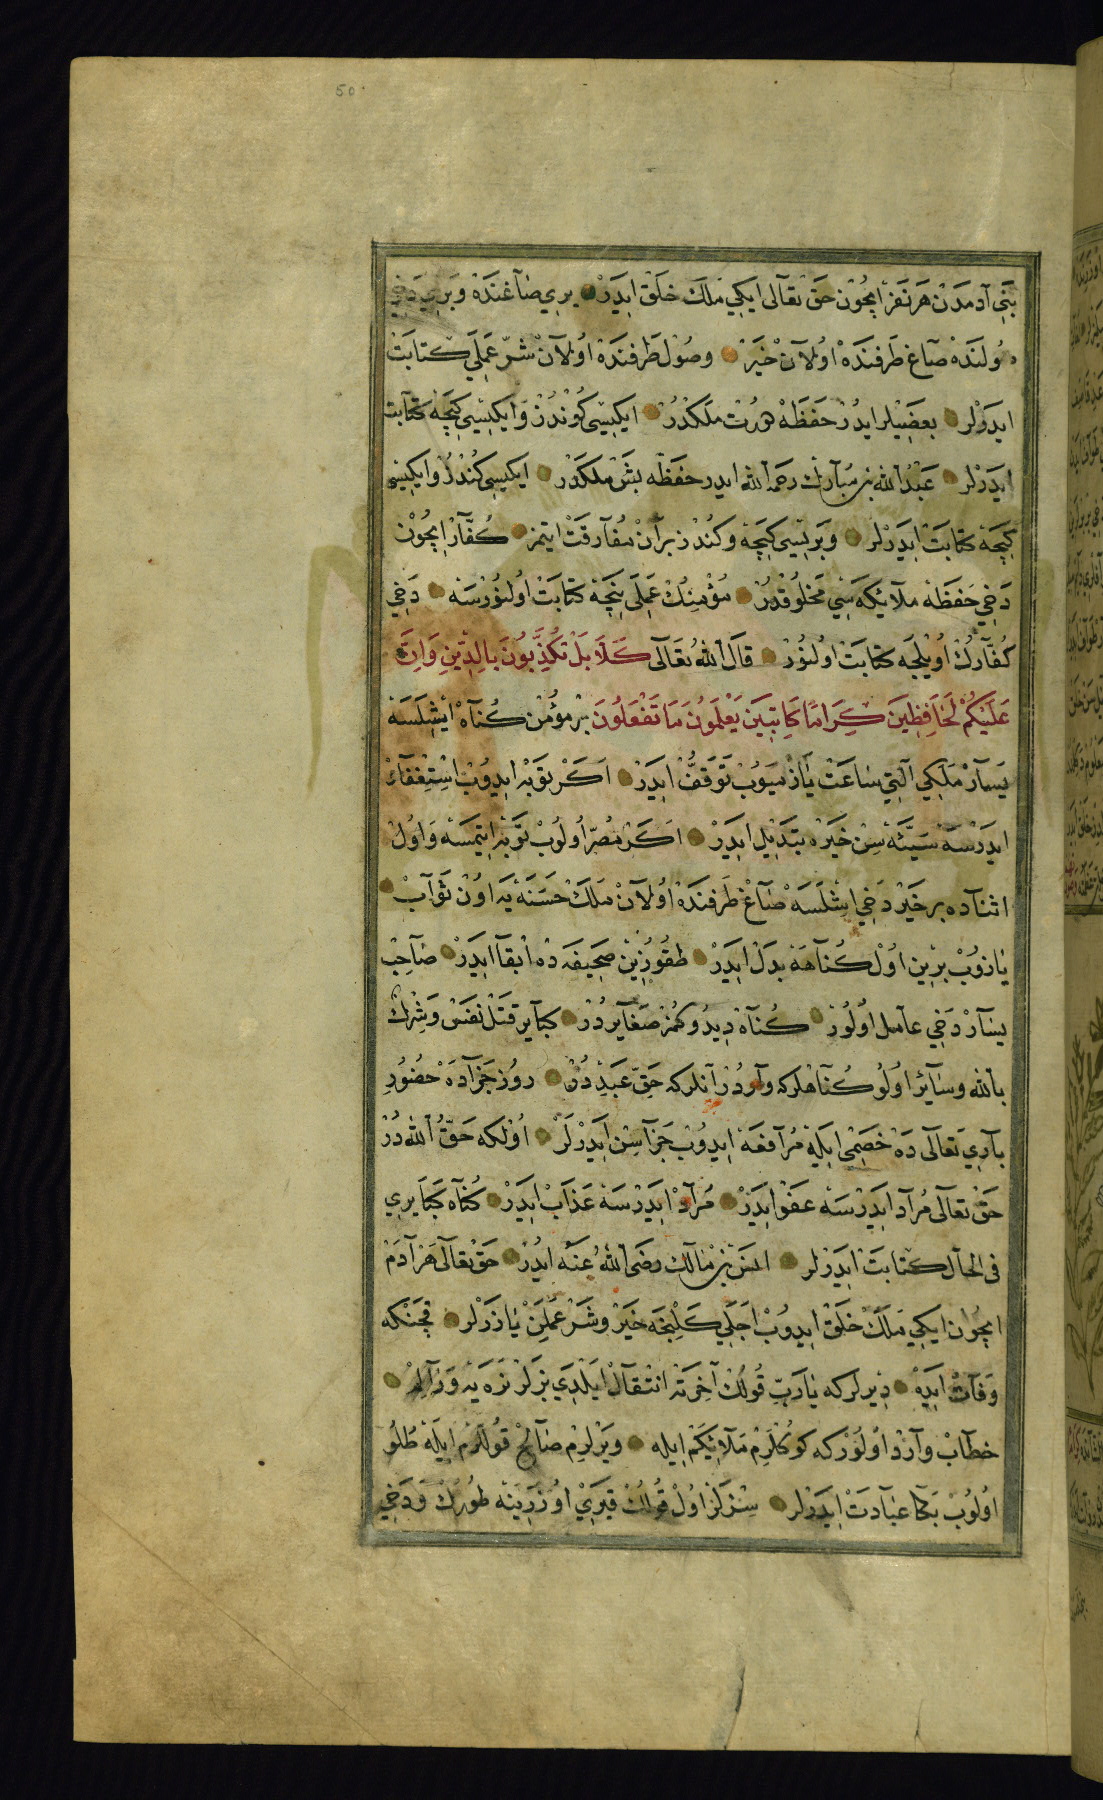 50
بَنِي آدمدَنْ هَر نَفَرْ اِيچُوْن حَقْ تعَآلى ايكِي مَلَكْ خَلَقْ ايدَرْ بِري صَاغنَدَهْ وَبِرِي دَخِي
صُولنَدَهْ صَاغْ طَرفنَدَهْ اوُلاَنْ خَيْر وصُوْل طَرفنَدَهْ اوُلاَنْ شَرّ عَمَلِي كتابَتْ
ايدَرْلر بعضِيلر ايدُرْ حَفَظَهْ دورت مَلَكدُرْ ايكِيسِى كُوْندُزْ وَايكِيسِى كِيجَه كتابَت
ايدَرْلر عَبْدُالله بن مُبَارَك رحمه الله ايدر حفَظَه بَشْ ملكدَرْ ايكيسِى كُندُزْ وايكِيسِى
كِيجَه كتابَتْ ايدَرلر وَبريسِى كِيجَه وكُندُز برآنْ مُفَارقَتْ ايتمز كُفَّار اِيچُوْن
دَخِي حَفَظَهْ مَلآئِكَه سِي مَخلوُقدُرْ مُؤْمِنِكْ عَمَلِي نِيجَهْ كتابَتْ اوُلنوُرْسَه دَخِي
كُفَّارِكْ اوُيْلجَه كتابَتْ اوُلنوُرْ قَالَ اللهُ تعَالَى كَلاَّ بَلْ تُكَذِّبُونَ بِالدِّينِ وَاِنَّ
عَلَيْكُمْ لَحَافِظِينَ كِرَامًا كَاتِبِينَ يَعْلَمُونَ مَا تَفْعَلُونَ بِرْ مؤْمِنْ كُنَاهْ ايشِلَسَهْ
يَسَارْ مَلَكِي آلتِي سَاعَتْ يَازمَيوُبْ تَوَقُّفْ ايدَرْ اَكَرْ توَبَه ايدوُبْ اسْتِغْفَارْ
ايدَرْسَهْ سَيِّئَه سِنْ خَيْرَه تَبْدِيلْ ايدَرْ اَكَرْ مُصِرّ اوُلوُبْ توَبَه ايتمَسَه وَاوُلْ
اثنَاده بِر خَيْر دَخِي اِشْلَسَهْ صَاغْ طَرفنَدَهْ اوُلاَنْ مَلَكْ حَسَنَه يَه اوُنْ ثوَابْ
يَازوُبْ بِرِين اوُلْ كُنَاهَه بَدَلْ ايدَرْ طقُوُزِينْ صَحِيفَه دَه اِبْقَا ايدَرْ صَاحِبْ
يسَارْ دَخِي عَامل اوُلُوْر كُنَاهْ دِيدوُكمُز صَغَايِر دُرْ كبَاير قَتْل نَفَسْ وَشِرْكْ
بِالله وسَايَرْ اوُلوُ كُنَاهلركه وَاردُرْ آنلركه حَقّ عَبَدْ دُرْ روُز جَزَآدَهْ حُضوُرِ
بَارِي تَعَالَى دَهْ خَصِمِى ايلَه مُرافعَهْ ايدوُب جَزَاسِنْ ايدَرْلَرْ اوُلكه حَقُّ الله دُرْ
حَقْ تعَالَى مُرَاد ايدَرْسَه عفَوْ ايدَرْ مُرَادْ ايدَرْسَه عَذَابْ ايدَرْ كُنَاه كَبَايرِي
فِى الحَال كتابَتْ ايدَرلر انس بن مَالِك رضَى اللهُ عَنَه ايدُرْ حَقْ تعَالَى هَرْ آدَمْ
ايچُون ايكِي مَلَكْ خَلَقْ ايدوُبْ اجَلِي كَلِنجَه خَيْر وشَرْ عَمَلِنْ يَازَرْلر قَچَنْكه
وَفَاتْ ايدَهْ دِيرلر كه يَارَبّ قُولكْ آخِرَتَه انتقَالْ ايلَدِي بزلَرْ نَرَه يَه وَرَالمْ
خطَابْ وَآرِدْ اوُلَوُرْ كه كوكلَرِمْ مَلاَئِكَمْ ايله وَيَرلرِمْ صَالِحْ قُوللَرِمْ ايلَهْ طُلوُ
اوُلوُبْ بَكَا عبَادَتْ ايدَرْلر سِزْلَرْ اوُلْ قُوُلُكْ قَبْرِي اوُزرِينَه طوُرُكْ وَدَخِي